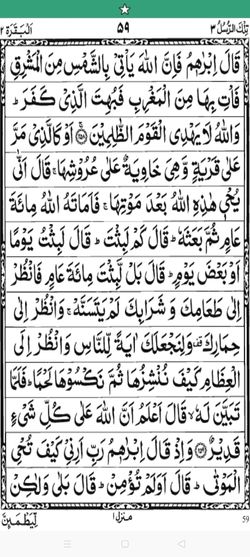 تِلْكَ الرُّسُلُ ٣ ٥٩ اَلْبَقَرَة ٢
قَالَ اِبْرٰهٖمُ فَاِنَّ اللّٰهَ يَاْتِيْ بِالشَّمْسِ مِنَ الْمَشْرِقِ
فَاْتِ بِهَا مِنَ الْمَغْرِبِ فَبُهِتَ الَّذِيْ كَفَرَ ؕ
وَاللّٰهُ لَا يَهْدِي الْقَوْمَ الظّٰلِمِيْنَ ۝ اَوْ كَالَّذِيْ مَرَّ
عَلٰى قَرْيَةٍ وَّهِيَ خَاوِيَةٌ عَلٰى عُرُوْشِهَا ۚ قَالَ اَنّٰى
يُحْيٖ هٰذِهِ اللّٰهُ بَعْدَ مَوْتِهَا ۚ فَاَمَاتَهُ اللّٰهُ مِائَةَ
عَامٍ ثُمَّ بَعَثَهٗ ؕ قَالَ كَمْ لَبِثْتَ ؕ قَالَ لَبِثْتُ يَوْمًا
اَوْ بَعْضَ يَوْمٍ ؕ قَالَ بَلْ لَّبِثْتَ مِائَةَ عَامٍ فَانْظُرْ
اِلٰى طَعَامِكَ وَشَرَابِكَ لَمْ يَتَسَنَّهْ ۚ وَانْظُرْ اِلٰى
حِمَارِكَ وَلِنَجْعَلَكَ اٰيَةً لِّلنَّاسِ وَانْظُرْ اِلَى
الْعِظَامِ كَيْفَ نُنْشِزُهَا ثُمَّ نَكْسُوْهَا لَحْمًا ؕ فَلَمَّا
تَبَيَّنَ لَهٗ ۙ قَالَ اَعْلَمُ اَنَّ اللّٰهَ عَلٰى كُلِّ شَيْءٍ
قَدِيْرٌ ۝ وَاِذْ قَالَ اِبْرٰهٖمُ رَبِّ اَرِنِيْ كَيْفَ تُحْيِ
الْمَوْتٰى ؕ قَالَ اَوَلَمْ تُؤْمِنْ ؕ قَالَ بَلٰى وَلٰكِنْ
لِّيَطْمَىِٕنَّ منزل ١ 59